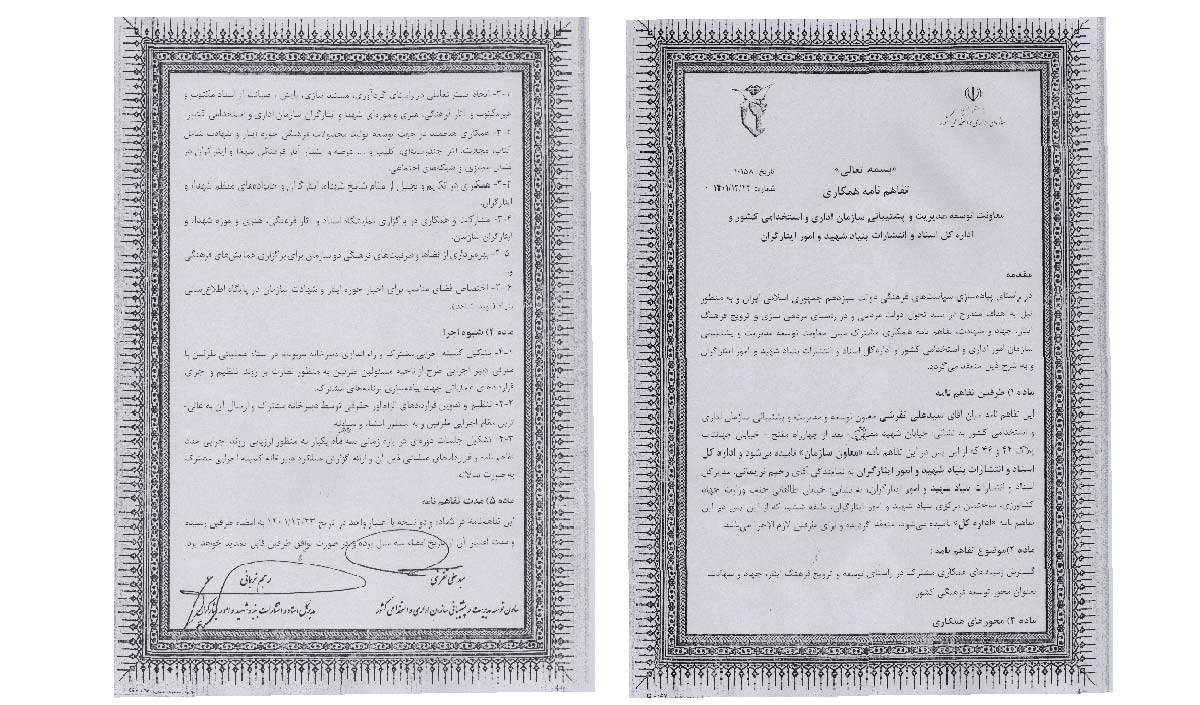 سازمان اداری و استخدامی کشور
«بسمه تعالی»
تاریخ: ۱۰۱۵۸
تفاهم نامه همکاری
شماره: ۱۴۰۱/۱۲/۲۲
معاونت توسعه مدیریت و پشتیبانی سازمان اداری و استخدامی کشور و
اداره کل اسناد و انتشارات بنیاد شهید و امور ایثارگران
مقدمه
در راستای پیاده‌سازی سیاست‌های فرهنگی دولت سیزدهم جمهوری اسلامی ایران و به منظور
نیل به اهداف مندرج در سند تحول دولت مردمی و در راستای مردمی سازی و ترویج فرهنگ
ایثار، جهاد و شهادت، تفاهم نامه همکاری مشترک مابین معاونت توسعه مدیریت و پشتیبانی
سازمان امور اداری و استخدامی کشور و اداره‌کل اسناد و انتشارات بنیاد شهید و امور ایثارگران
و به شرح ذیل منعقد می‌گردد.
ماده ۱) طرفین تفاهم نامه
این تفاهم نامه میان آقای سیدعلی تفرشی معاون توسعه و مدیریت و پشتیبانی سازمان اداری
و استخدامی کشور به نشانی: خیابان شهید بعد از چهارراه مفتح - خیابان
پلاک ۴۴ و ۴۶ که از این پس در این تفاهم نامه «معاون سازمان» نامیده می‌شود و اداره کل
اسناد و انتشارات بنیاد شهید و امور ایثارگران به نمایندگی آقای رحیم نریمانی، مدیرکل
اسناد و انتشارات بنیاد شهید و امور ایثارگران، به نشانی: خیابان طالقانی جنب وزارت جهاد
کشاورزی، ساختمان مرکزی بنیاد شهید و امور ایثارگران، طبقه ششم که از این پس در این
تفاهم نامه «اداره کل» نامیده می‌شود، منعقد گردیده و برای طرفین لازم الاجرا می‌باشد.
ماده ۲)موضوع تفاهم نامه :
گسترش زمینه‌های همکاری مشترک در راستای توسعه و ترویج فرهنگ ایثار، جهاد و شهادت
بعنوان محور توسعه فرهنگی کشور.
ماده ۳) محورهای همکاری
۳-۱- ایجاد بستر تعاملی در راستای گردآوری، مستند سازی، پایش و صیانت از اسناد مکتوب و
غیرمکتوب و آثار فرهنگی، هنری و موزه‌ای شهدا و ایثارگران سازمان اداری و استخدامی کشور.
۳-۲- همکاری هدفمند در جهت توسعه تولید محصولات فرهنگی حوزه ایثار و شهادت شامل
کتاب، مجلات، آثار چندرسانه‌ای، کلیپ و ... عرضه و انتشار آثار فرهنگی شهدا و ایثارگران در
فضای مجازی و شبکه‌های اجتماعی.
۳-۳- همکاری در تکریم و تجلیل از مقام شامخ شهداء، ایثارگران و خانواده‌های معظم شهدا، و
ایثارگران.
۳-۴- مشارکت و همکاری در برگزاری نمایشگاه اسناد و آثار فرهنگی، هنری و موزه شهدا، و
ایثارگران سازمان.
۳-۵- بهره‌برداری از فضاها و ظرفیت‌های فرهنگی دو سازمان برای برگزاری همایش‌های فرهنگی
و...
۳-۶- اختصاص فضای مناسب برای اخبار حوزه ایثار و شهادت سازمان در پایگاه اطلاع‌رسانی
بنیاد (نوید شاهد).
ماده ۴) شیوه اجرا
۴-۱- تشکیل کمیته اجرایی مشترک و راه اندازی دبیرخانه مربوطه در ستاد عملیاتی طرفین با
معرفی دبیر اجرایی طرح از ناحیه مسئولین طرفین به منظور نظارت بر روند تنظیم و اجرای
قراردادهای عملیاتی جهت پیاده‌سازی برنامه‌های مشترک.
۴-۲- تنظیم و تدوین قراردادهای الزام‌آور حقوقی توسط دبیرخانه مشترک و ارسال آن به عالی-
ترین مقام اجرایی طرفین و به منظور امضاء و مبادله.
۴-۳- تشکیل جلسات دوره‌ای در بازه زمانی سه ماه یکبار به منظور ارزیابی روند اجرایی مفاد
تفاهم نامه و قراردادهای عملیاتی ذیل آن و ارائه گزارش عملکرد دبیرخانه کمیته اجرایی مشترک
به صورت سالانه.
ماده ۵) مدت تفاهم نامه
این تفاهم‌نامه در ۵ماده، و دو نسخه با اعتبار واحد در تاریخ ۱۴۰۱/۱۲/۲۳ به امضاء طرفین رسیده
و مدت اعتبار آن از تاریخ امضاء سه سال بوده و در صورت توافق طرفین قابل تمدید خواهد بود.
سید علی تفرشی
معاون توسعه مدیریت و پشتیبانی سازمان اداری و استخدامی کشور
رحیم نریمانی
مدیرکل اسناد و انتشارات بنیاد شهید و امور ایثارگران